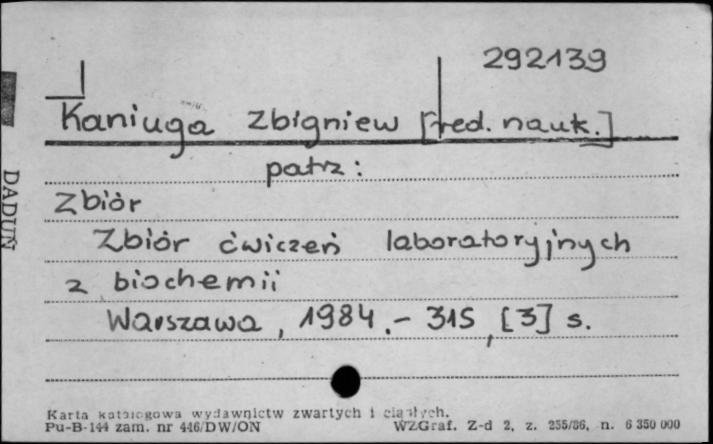 292139
Kaniuga Zbigniew [red. nauk.]
patrz:
Zbiór
Zbiór ćwiczeń laboratoryjnych
z biochemii
Warszawa, 1984.- 315, [3] s.
DADUŃ
Karta katalogowa wydawnictw zwartych i ciągłych.
Pu-B-144 zam. nr 446/DW/ON WZGraf. Z-d 2, z. 255/86, n. 6 350 000